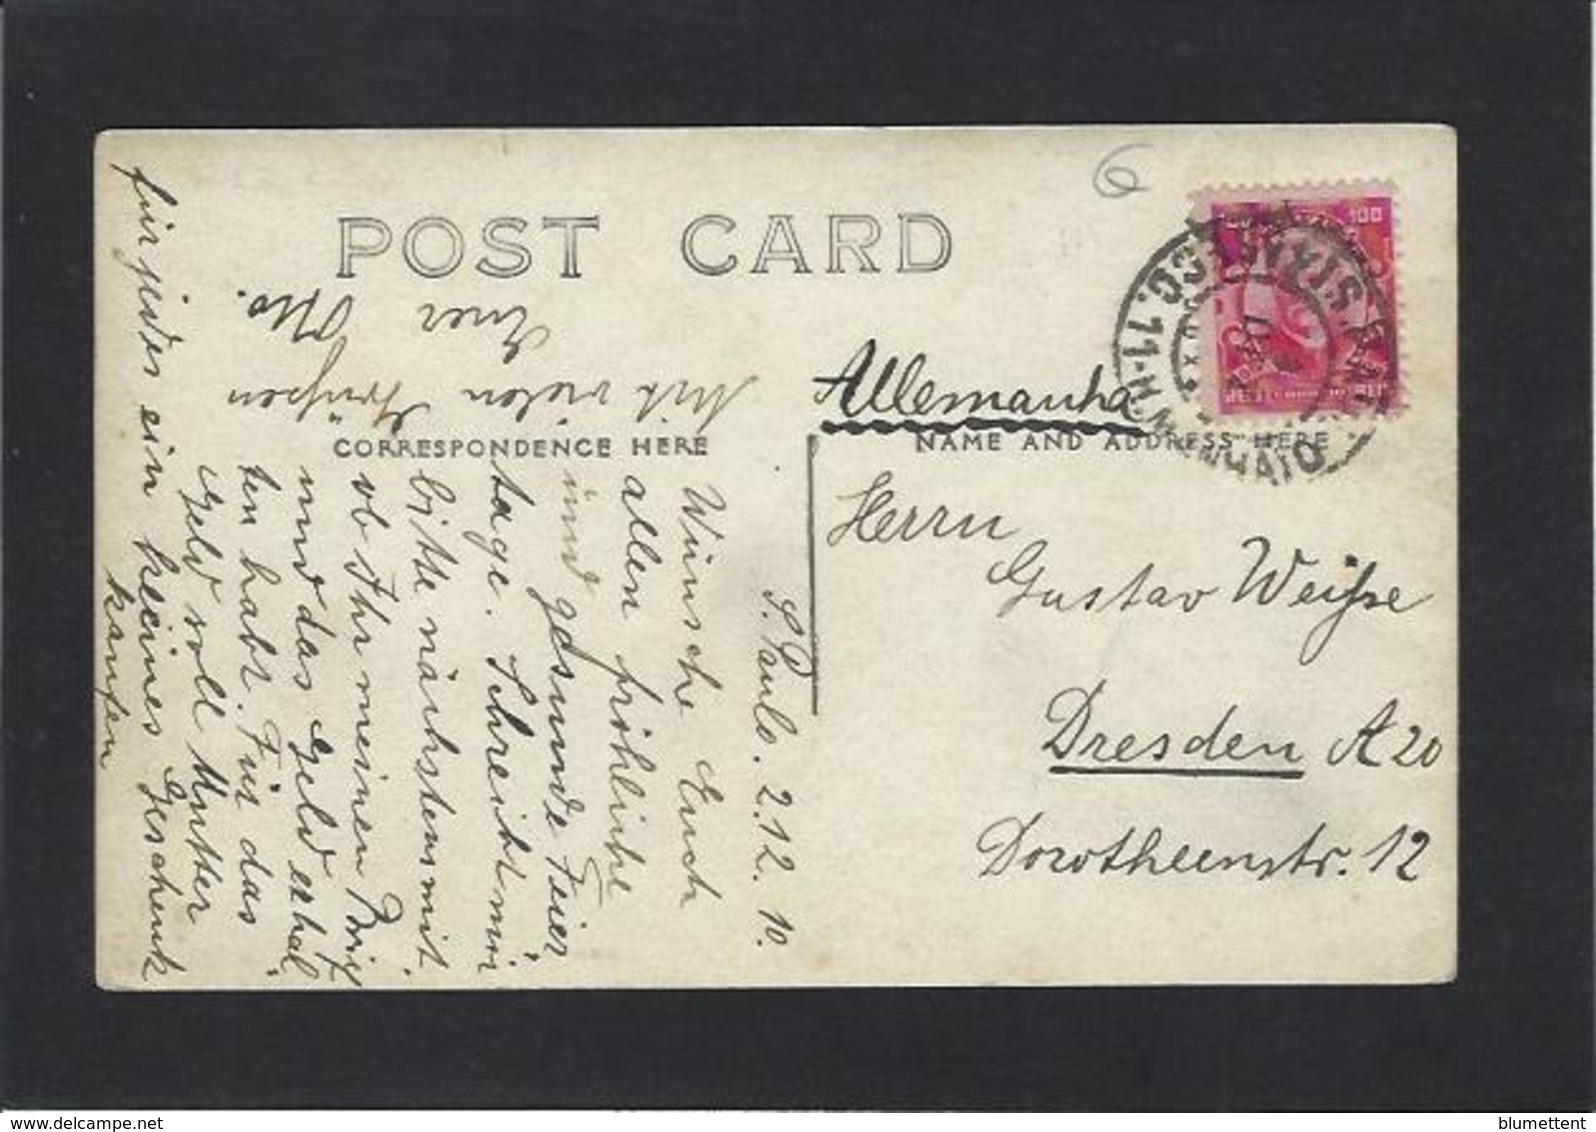 6
POST CARD
100
CORRESPONDENCE HERE
NAME AND ADDRESS HERE
Allemanha
Herrn
Gustav Weiße
Dresden A 20
Dorotheenstr. 12
S. Paulo. 2.12. 10.
Wünsche Euch
allen fröhliche
und gesunde Feier
tage. Schreibt mir
bitte nächstens mit
ob Ihr meinen Brief
und das Geld erhal
ten habt. Für das
Geld soll Mutter
für jedes ein kleines Geschenk
kaufen
Mit vielen Grüßen
Euer Otto.
blumettent